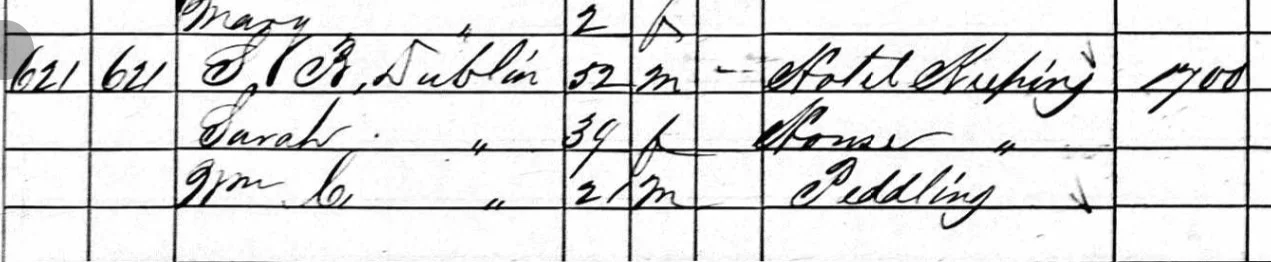 Mary " 2 f
621 621 S. B. Dublin 52 m -- Hotel Keeping 1700
Sarah " 39 f House "
Wm C. " 21 m Peddling